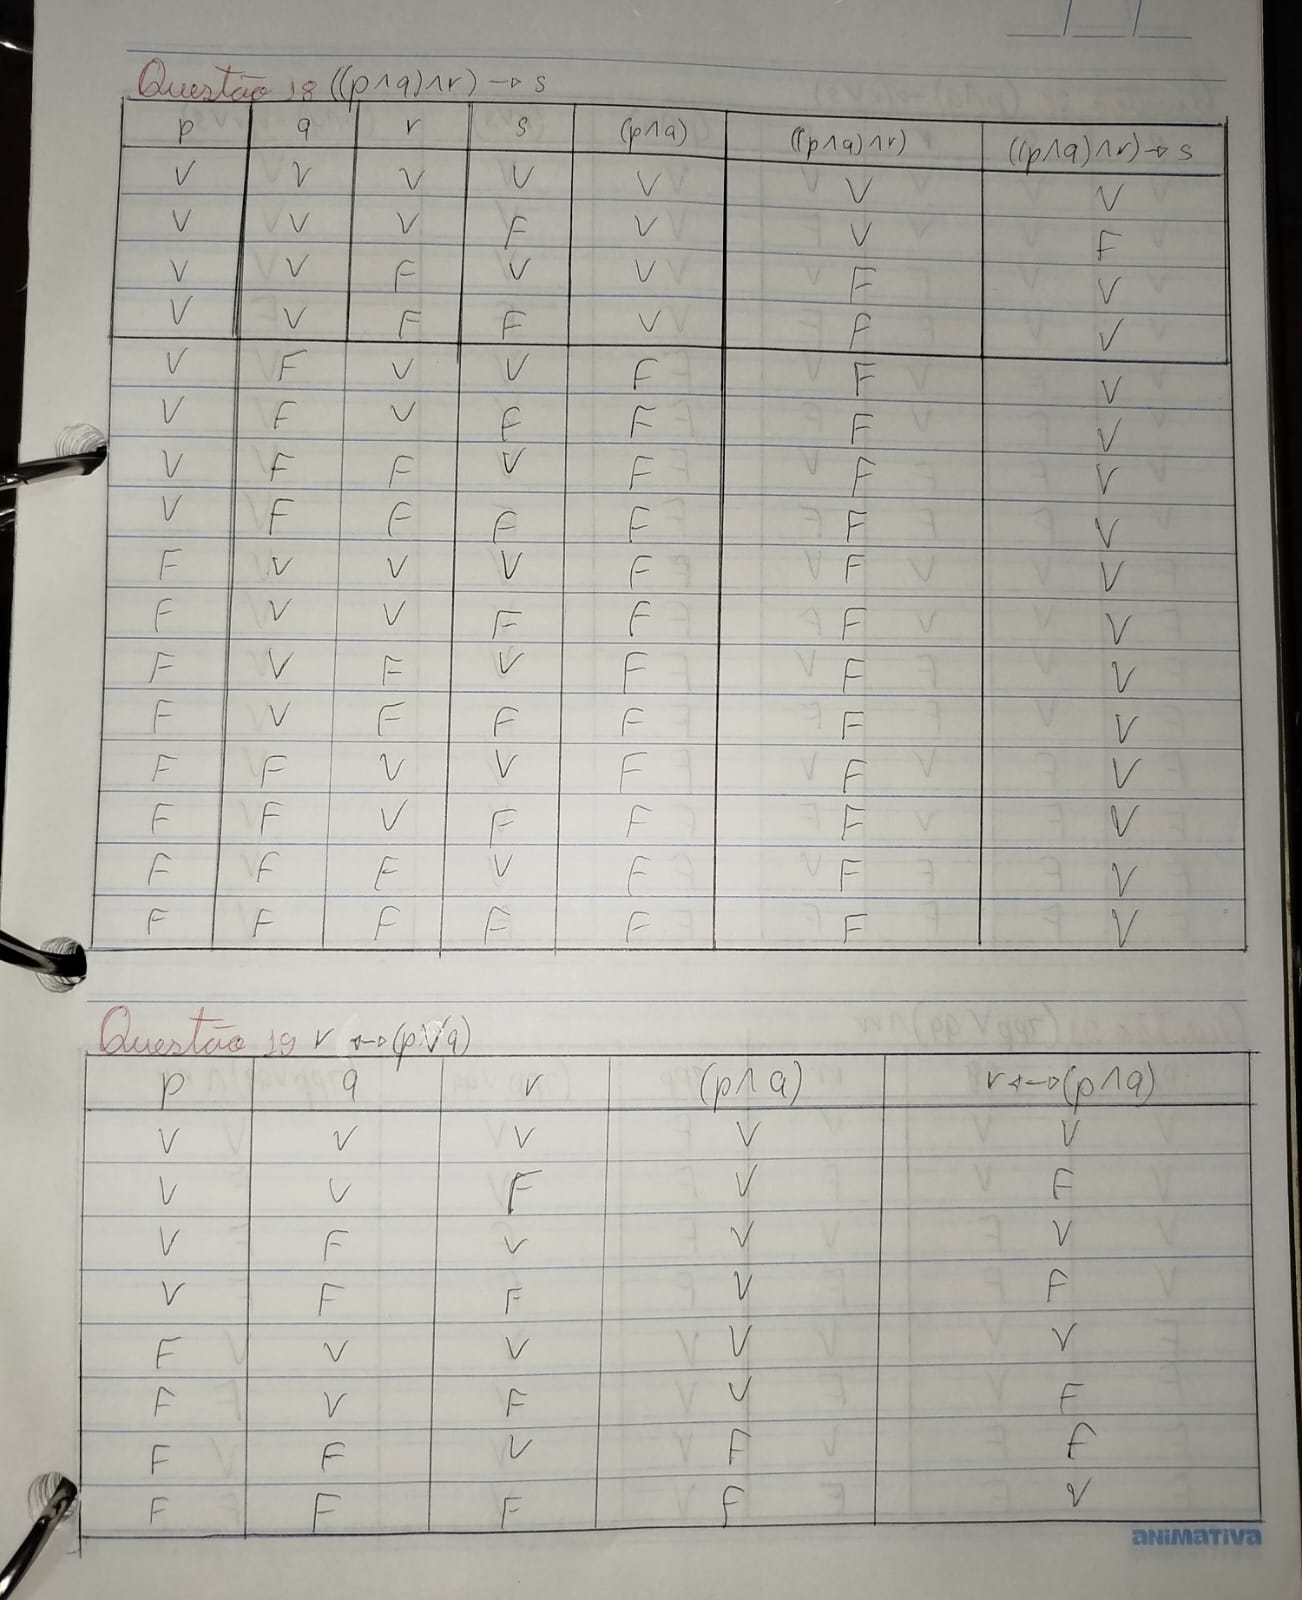 Questão 18 ((p∧q)∧r) → s
p q r s (p∧q) ((p∧q)∧r) ((p∧q)∧r)→ s
V V V V V V V
V V V F V V F
V V F V V F V
V V F F V F V
V F V V F F V
V F V F F F V
V F F V F F V
V F F F F F V
F V V V F F V
F V V F F F V
F V F V F F V
F V F F F F V
F F V V F F V
F F V F F F V
F F F V F F V
F F F F F F V
Questão 19 r ↔ (p∨q)
p q r (p∧q) r↔(p∧q)
V V V V V
V V F V F
V F V V V
V F F V F
F V V V V
F V F V F
F F V F F
F F F F V
aNiMaTiVa